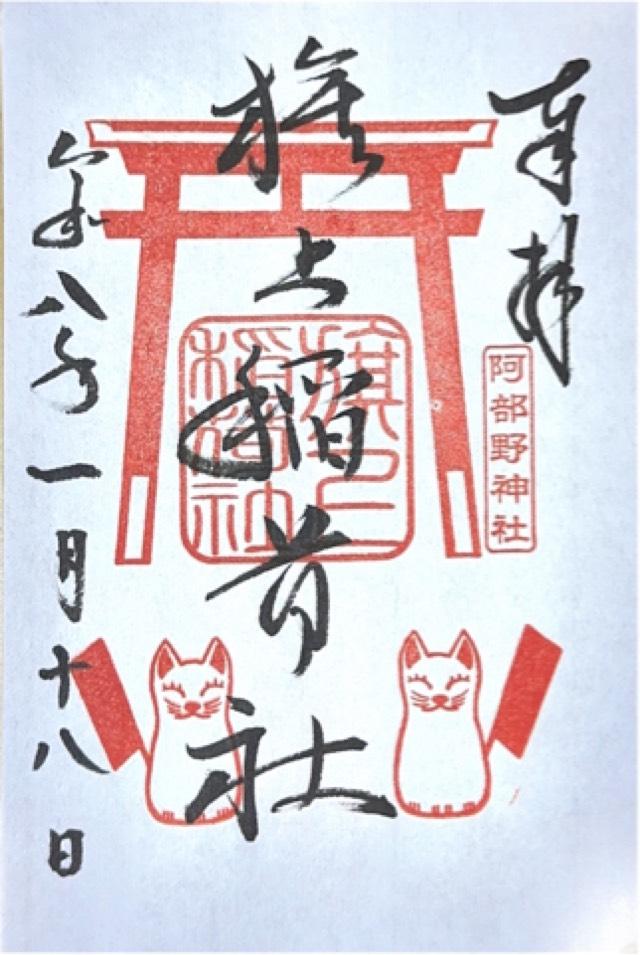 奉拝
阿部野神社
旗上稲荷社
旗上
稲荷社
令和八年一月十八日